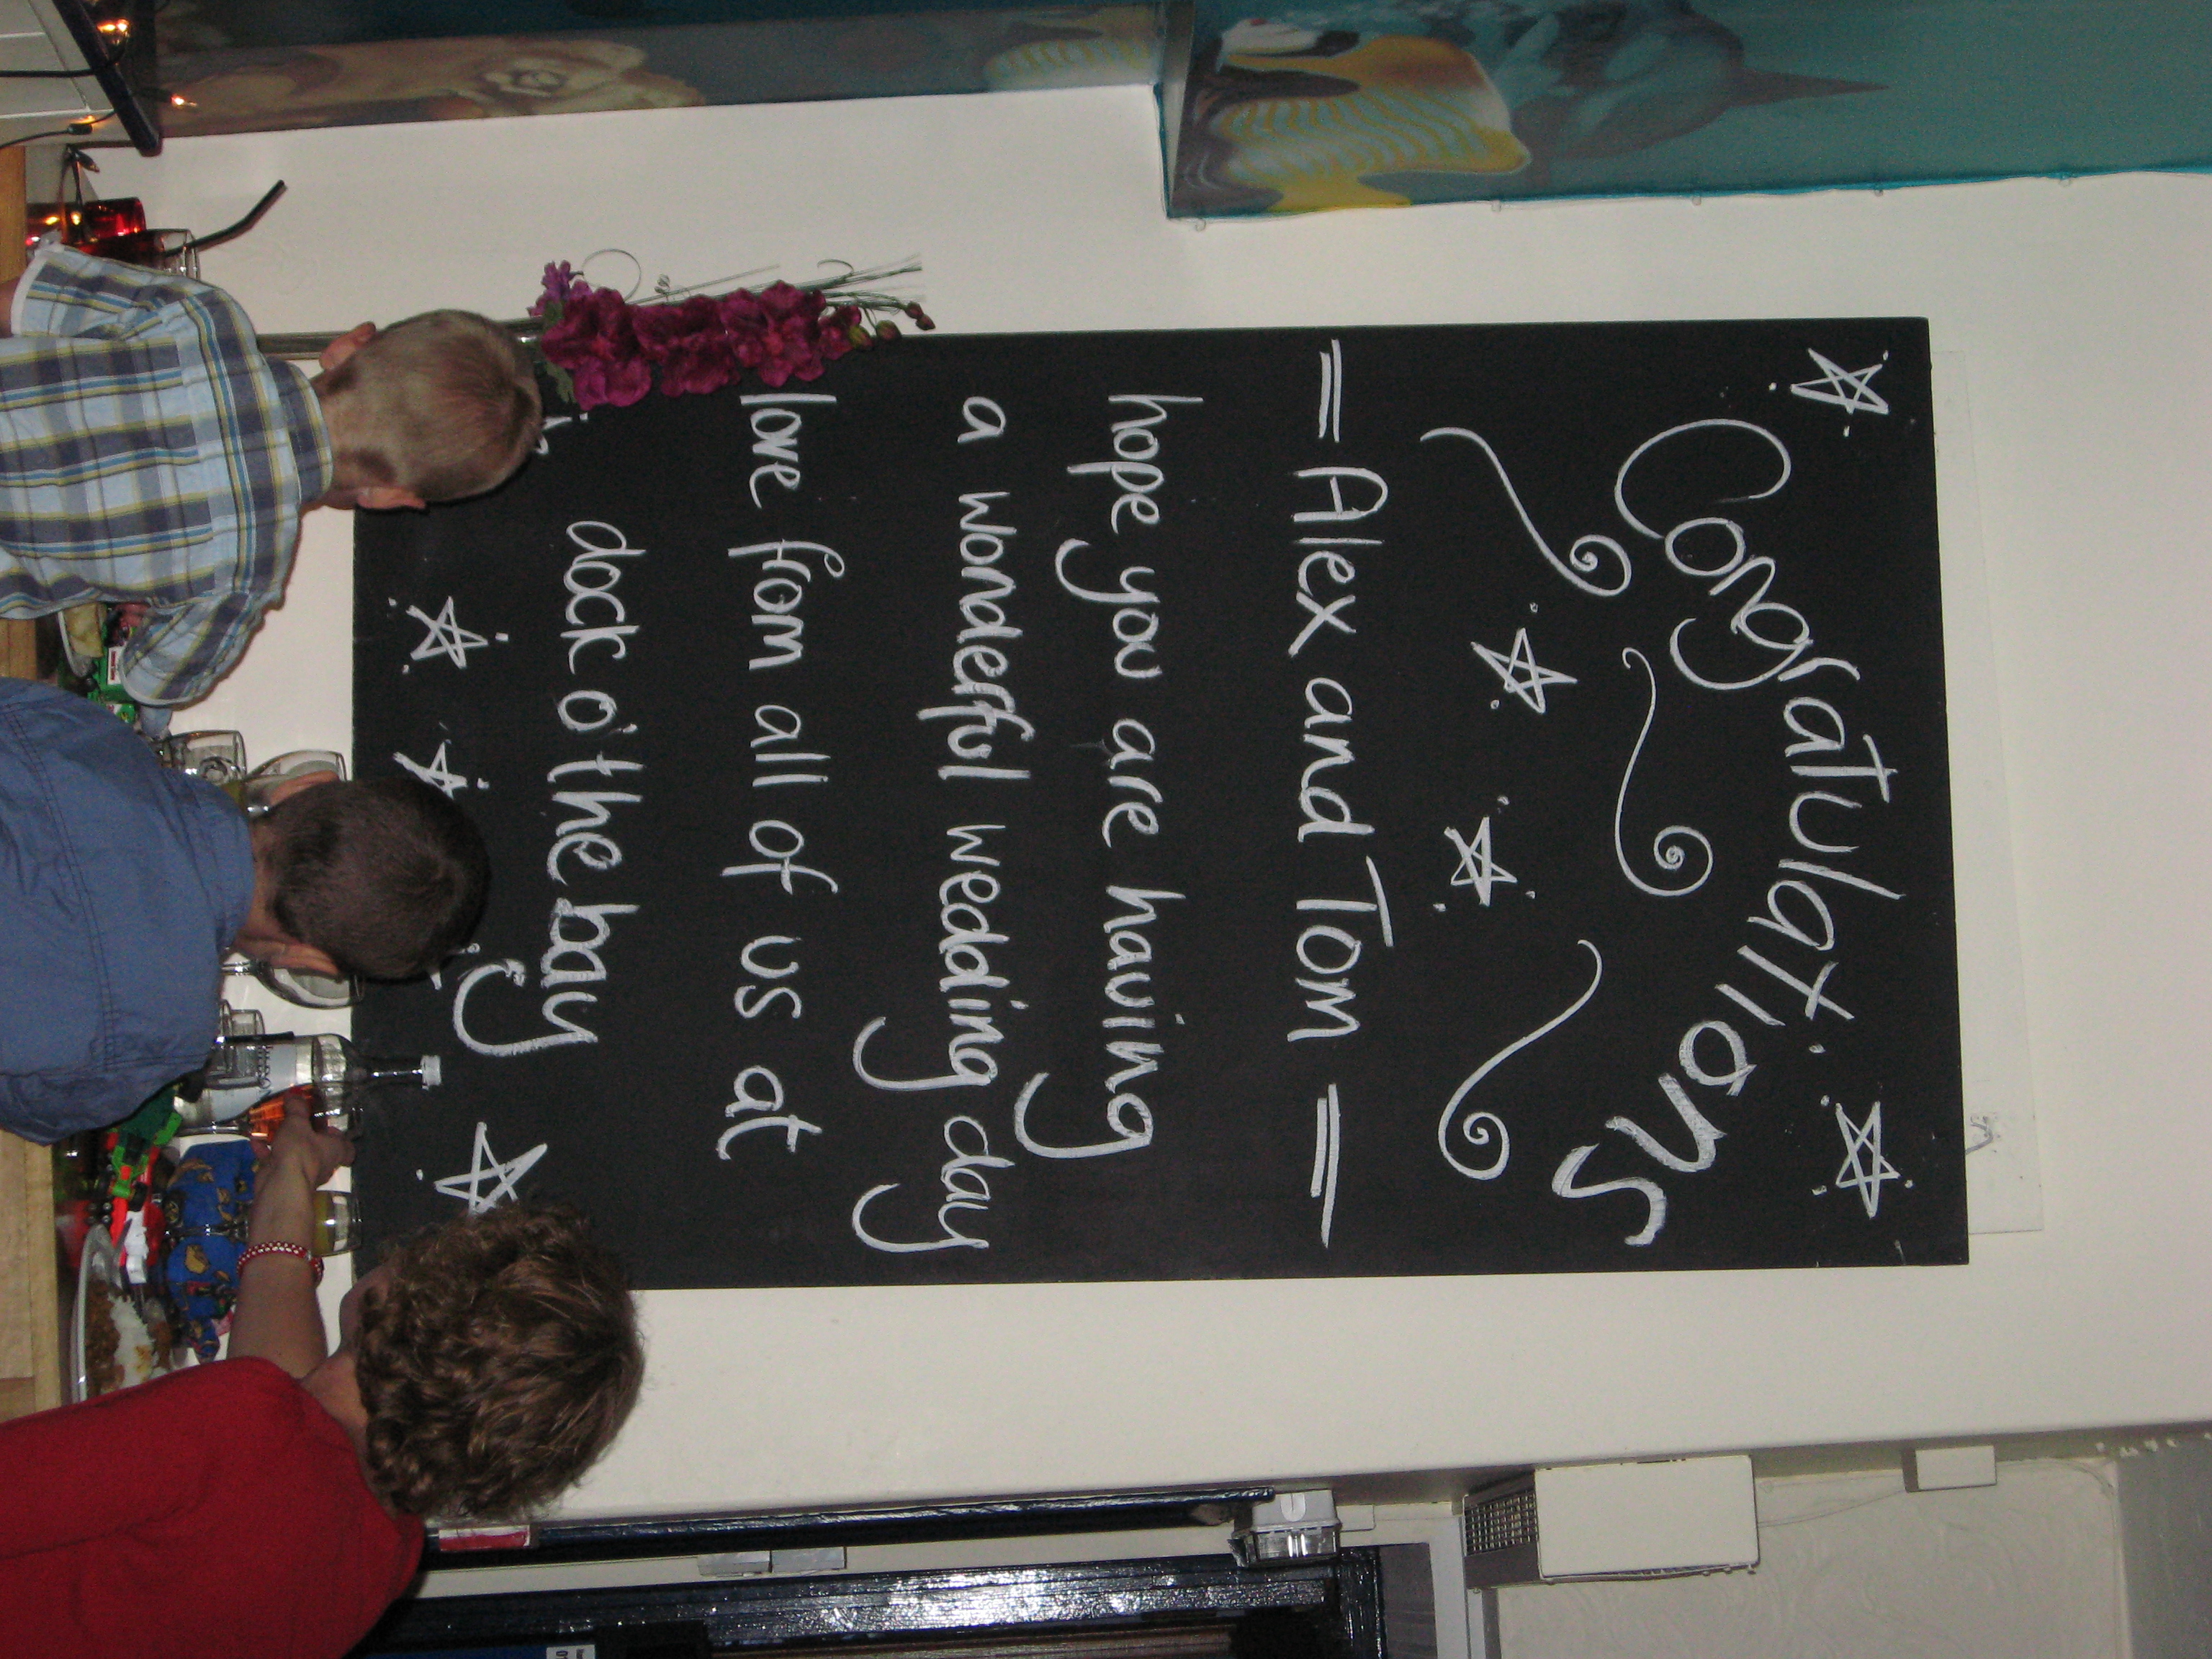 Congratulations
Alex and Tom
hope you are having
a wonderful wedding day
love from all of us at
dock o' the bay